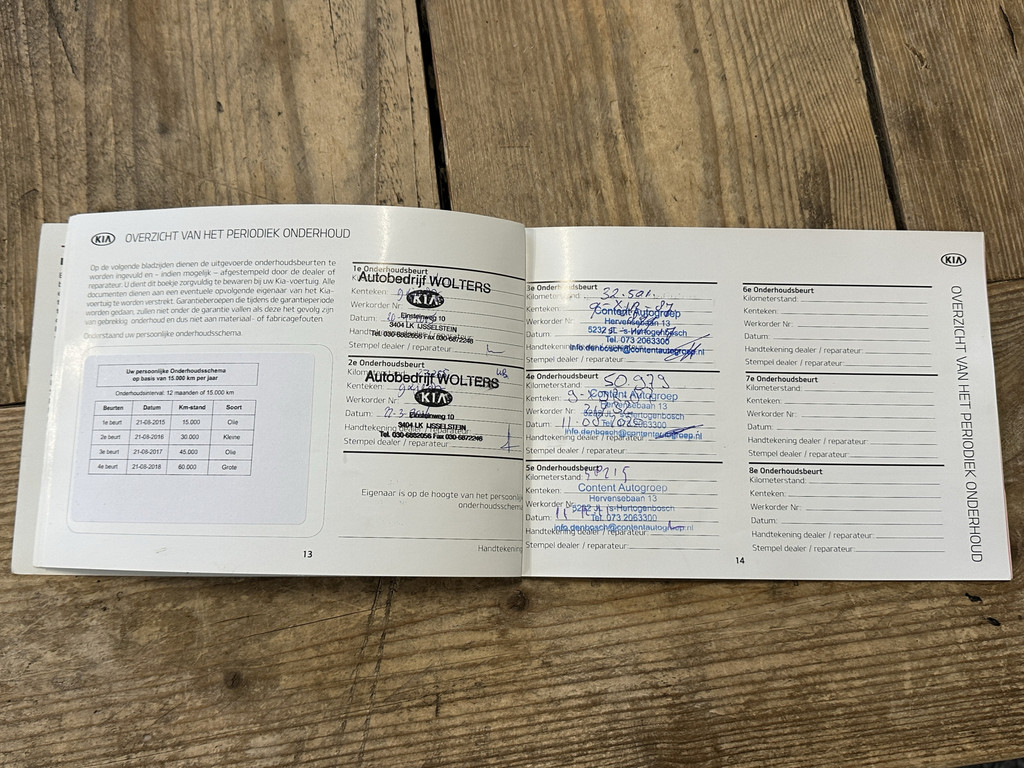 KIA OVERZICHT VAN HET PERIODIEK ONDERHOUD
Op de volgende bladzijden dienen de uitgevoerde onderhoudsbeurten te
worden ingevuld en - indien mogelijk - afgestempeld door de dealer of
reparateur. U dient dit boekje zorgvuldig te bewaren bij uw Kia-voertuig. Alle
documenten dienen aan een eventuele opvolgende eigenaar van het Kia-
voertuig te worden verstrekt. Garantieberoepen die tijdens de garantieperiode
worden gedaan, zullen niet onder de garantie vallen als deze het gevolg zijn
van gebrekkig onderhoud en dus niet aan materiaal- of fabricagefouten.
Onderstaand uw persoonlijke onderhoudsschema.
Uw persoonlijke Onderhoudsschema
op basis van 15.000 km per jaar
Onderhoudsinterval: 12 maanden of 15.000 km
Beurten Datum Km-stand Soort
1e beurt 21-08-2015 15.000 Olie
2e beurt 21-08-2016 30.000 Kleine
3e beurt 21-08-2017 45.000 Olie
4e beurt 21-08-2018 60.000 Grote
13
1e Onderhoudsbeurt
Autobedrijf WOLTERS
Kenteken:
KIA
Werkorder Nr
Einsteinweg 10
Datum:
3404 LK IJSSELSTEIN
Tel. 030-6882056 Fax 030-6872246
Stempel dealer / reparateur:
2e Onderhoudsbeurt
Autobedrijf WOLTERS
Kenteken:
KIA
Werkorder Nr
Einsteinweg 10
Datum:
3404 LK IJSSELSTEIN
Handtekening dealer
Tel. 030-6882056 Fax 030-6872246
Stempel dealer / reparateur:
Eigenaar is op de hoogte van het persoonlijk
onderhoudsschema
Handtekening
3e Onderhoudsbeurt
Kilometerstand: 32.501
Kenteken:
Content Autogroep
Werkorder Nr
Hervensebaan 13
Datum:
5232 JL 's-Hertogenbosch
Tel. 073 2063300
Handtekening
info.denbosch@contentautogroep.nl
Stempel dealer / reparateur:
4e Onderhoudsbeurt
Kilometerstand: 50.979
Kenteken:
Content Autogroep
Werkorder Nr
Hervensebaan 13
5232 JL 's-Hertogenbosch
Datum:
Tel. 073 2063300
Handtekening
info.denbosch@contentautogroep.nl
Stempel dealer / reparateur:
5e Onderhoudsbeurt
Kilometerstand:
Kenteken:
Content Autogroep
Hervensebaan 13
Werkorder Nr
5232 JL 's-Hertogenbosch
Datum:
Tel. 073 2063300
Handtekening dealer / reparateur:
info.denbosch@contentautogroep.nl
Stempel dealer / reparateur:
14
6e Onderhoudsbeurt
Kilometerstand:
Kenteken:
Werkorder Nr:
Datum:
Handtekening dealer / reparateur:
Stempel dealer / reparateur:
7e Onderhoudsbeurt
Kilometerstand:
Kenteken:
Werkorder Nr:
Datum:
Handtekening dealer / reparateur:
Stempel dealer / reparateur:
8e Onderhoudsbeurt
Kilometerstand:
Kenteken:
Werkorder Nr:
Datum:
Handtekening dealer / reparateur:
Stempel dealer / reparateur:
KIA
OVERZICHT VAN HET PERIODIEK ONDERHOUD